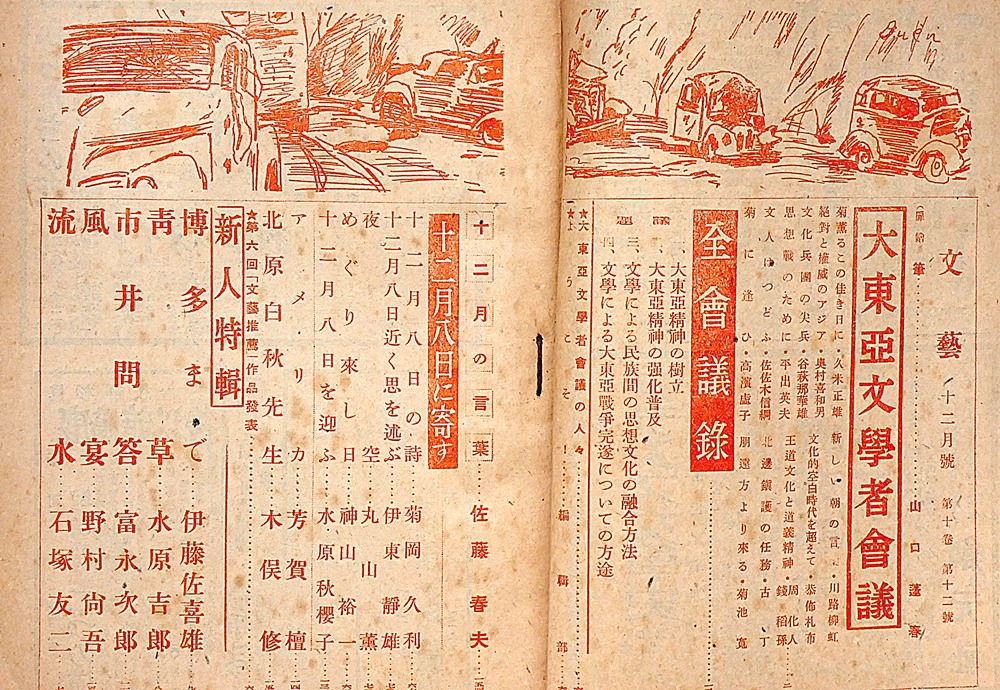 文藝 十二月號 第十卷 第十二號
山口蓬春
大東亞文學者會議
菊薰るこの佳き日に・久米正雄
絕對と權威のアジア・奥村喜和男
文化兵團の尖兵・谷萩那華雄
思想戰のために・平出英夫
文人はつどふ・佐佐木信綱
菊に逢ひ・高濱虛子
新しい朝の言・川路柳虹
文化的空白時代を超えて・恭佈札布
王道文化と道義精神・錢稻孫
周化人
北邊鎭護の任務・古丁
朋遠方より來る・菊池寬
全會議錄
議題
一、大東亞精神の樹立
二、大東亞精神の强化普及
三、文學による民族間の思想文化の融合方法
四、文學による大東亞戰爭完遂についての方途
★大東亞文學者會議の人々
★ようこそ!編輯部
十二月の言葉 佐藤春夫
十二月八日に寄す
十二月八日の詩 菊岡久利
十二月八日近く思を述ぶ 伊東靜雄
夜空 丸山薰
めぐり來し日 神山裕一
十二月八日を迎ふ 水原秋櫻子
アメリカ 芳賀檀
北原白秋先生 木俣修
★第六回「文藝推薦」作品發表
新人特輯
博多まで 伊藤佐喜雄
靑草 水原吉郎
市井問答 富永次郎
風宴 野村尙吾
流水 石塚友二